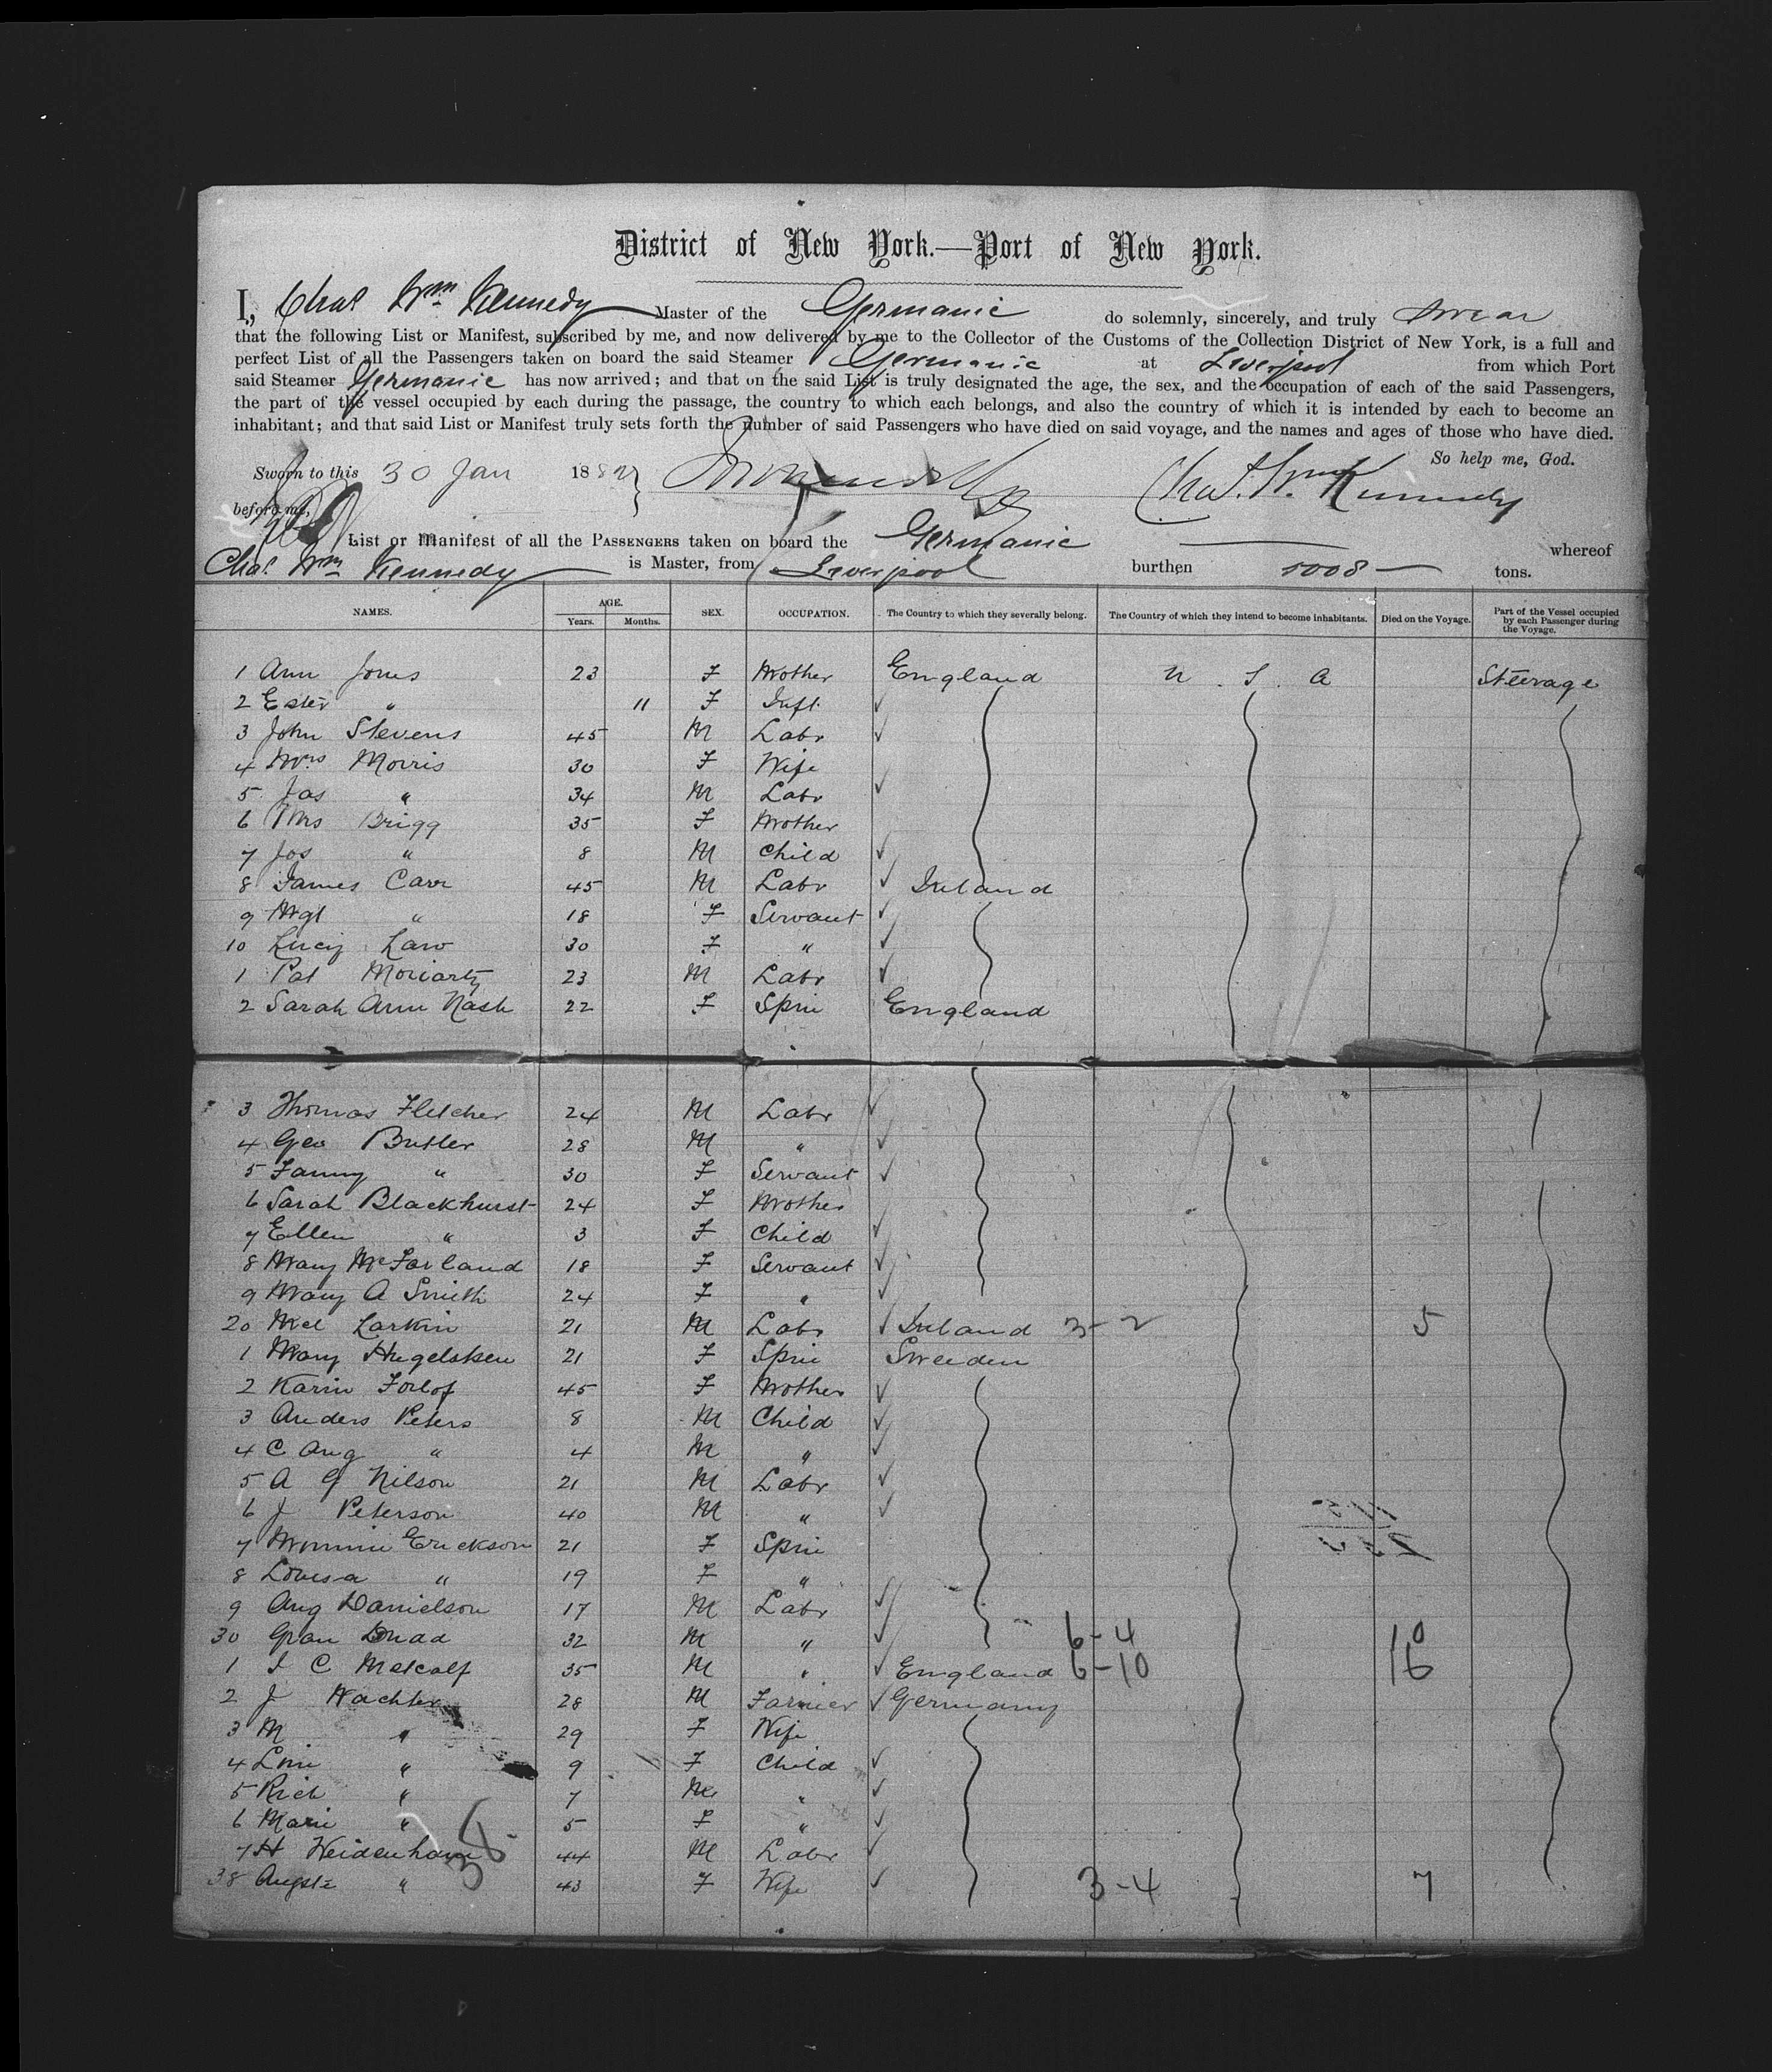 District of New York.—Port of New York.
I, Chas Wm Kennedy Master of the Germanic do solemnly, sincerely, and truly swear
that the following List or Manifest, subscribed by me, and now delivered by me to the Collector of the Customs of the Collection District of New York, is a full and
perfect List of all the Passengers taken on board the said Steamer Germanic at Liverpool from which Port
said Steamer Germanic has now arrived; and that on the said List is truly designated the age, the sex, and the occupation of each of the said Passengers,
the part of the vessel occupied by each during the passage, the country to which each belongs, and also the country of which it is intended by each to become an
inhabitant; and that said List or Manifest truly sets forth the number of said Passengers who have died on said voyage, and the names and ages of those who have died.
So help me, God.
Sworn to this 30 Jan 188 Chas. Wm Kennedy
before me,
List or Manifest of all the Passengers taken on board the Germanic whereof
Chas. Wm Kennedy is Master, from Liverpool burthen 5008 tons.
NAMES. AGE. Years. Months. SEX. OCCUPATION. The Country to which they severally belong. The Country of which they intend to become inhabitants. Died on the Voyage. Part of the Vessel occupied by each Passenger during the Voyage.
1 Ann Jones 23 F Mother England U. S. A Steerage
2 Ester " 11 F Inft
3 John Stevens 45 M Labr
4 Mrs Morris 30 F Wife
5 Jas " 34 M Labr
6 Mrs Brigg 35 F Mother
7 Jos " 8 M Child
8 James Carr 45 M Labr Ireland
9 Mgt " 18 F Servant
10 Lucy Law 30 F "
1 Pat Moriarty 23 M Labr
2 Sarah Ann Nash 22 F Spin England
3 Thomas Fletcher 24 M Labr
4 Geo Butler 28 M "
5 Fanny " 30 F Servant
6 Sarah Blackhurst 24 F Mother
7 Ellen " 3 F Child
8 Mary McFarland 18 F Servant
9 Mary A Smith 24 F "
20 Mcl Larkin 21 M Labr Ireland 3-2 5
1 Mary 21 F Spin Sweeden
2 Karin Forlof 45 F Mother
3 Anders Peters 8 M Child
4 C Aug " 4 M "
5 A G Nilson 21 M Labr
6 J Peterson 40 M "
7 Minnie Erickson 21 F Spin
8 Louisa " 19 F "
9 Aug Danielson 17 M Labr
30 32 M " 6-4 10
1 I C Metcalf 35 M " England 6-10 16
2 J Wachter 28 M Farmer Germany
3 M " 29 F Wife
4 " 9 F Child
5 Rich " 7 M "
6 Marie " 5 F "
7 H Weidenham 44 M Labr
38 Auguste " 43 F Wife 3-4 7
38